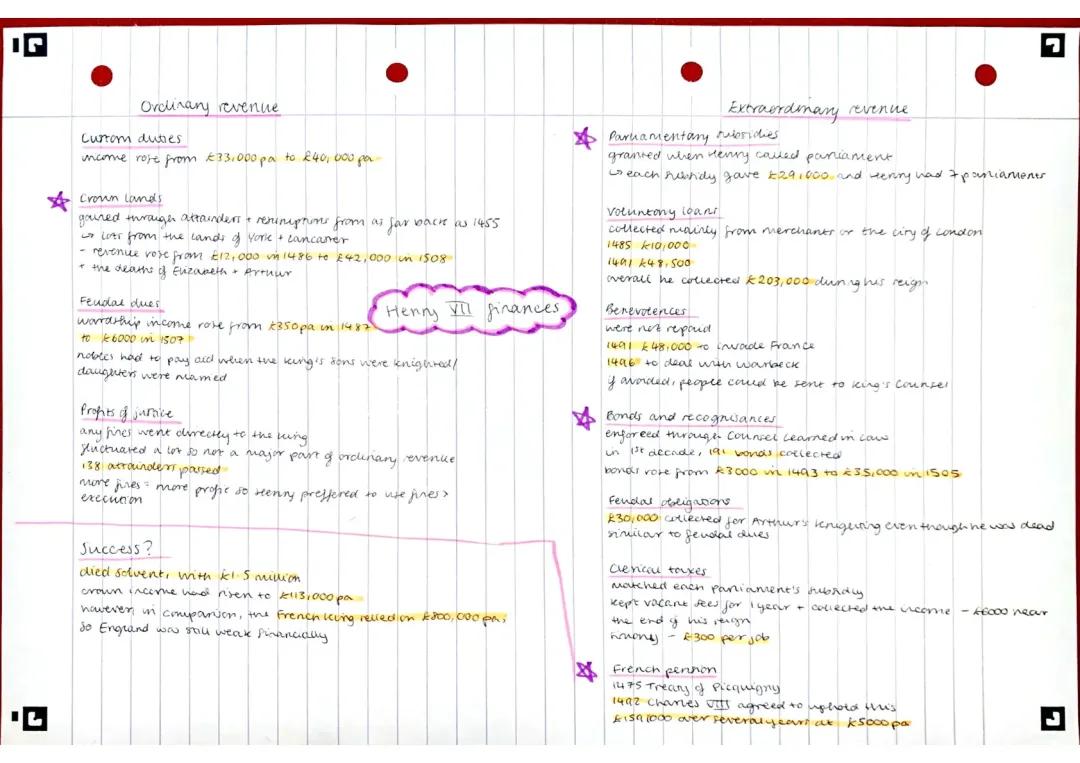 Ordinary revenue
Custom duties
income rose from £33,000 pa to £40,000 pa
Crown lands
gained through attainders + resumptions from as far back as 1455
↳ lots from the lands of York + Lancaster
- revenue rose from £12,000 in 1486 to £42,000 in 1508
+ the deaths of Elizabeth + Arthur
Feudal dues
wardship income rose from £350pa in 1487
to £6000 in 1507
nobles had to pay aid when the king's sons were knighted/
daughters were married
Profits of justice
any fines went directly to the king
fluctuated a lot so not a major part of ordinary revenue
138 attainders passed
more fines = more profit so Henry preffered to use fines >
execution
Success?
died solvent, with £1.5 million
crown income had risen to £113,000 pa
however, in comparison, the French king relied on £800,000 pa,
so England was still weak financially
Henry VII finances
Extraordinary revenue
Parliamentary subsidies
granted when Henry called parliament
↳ each subsidy gave £29,000 and Henry had 7 parliaments
Voluntary loans
collected mainly from merchants or the city of London
1485 £10,000
1491 £48,500
overall he collected £203,000 during his reign
Benevolences
were not repaid
1491 £48,000 to invade France
1496 to deal with Warbeck
if avoided, people could be sent to King's Counsel
Bonds and recognisances
enforced through Counsel Learned in Law
in 1st decade, 191 bonds collected
bonds rose from £3000 in 1493 to £35,000 in 1505
Feudal obligations
£30,000 collected for Arthur's knighting even though he was dead
similar to feudal dues
Clerical taxes
matched each parliament's subsidy
kept vacant sees for 1 year + collected the income - £6000 near
the end of his reign
simony - £300 per job
French pension
1475 Treaty of Picquigny
1492 Charles VIII agreed to uphold this
£159,000 over several years at £5000 pa